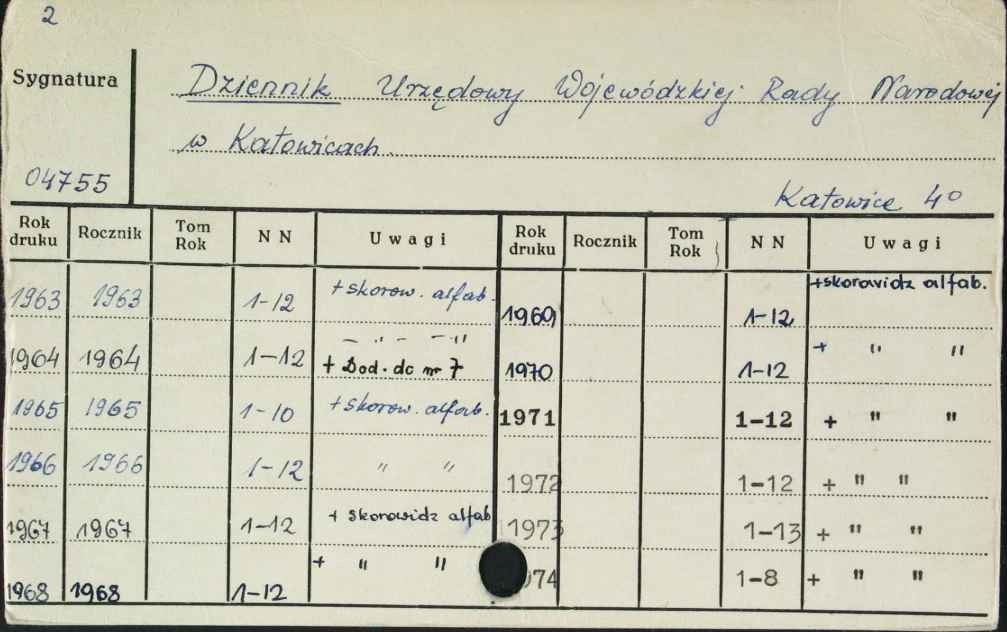 2
Sygnatura
Dziennik Urzędowy Wojewódzkiej Rady Narodowej
w Katowicach
04755
Katowice 4°
Rok druku Rocznik Tom Rok NN Uwagi Rok druku Rocznik Tom Rok NN Uwagi
1963 1963 1-12 +skorow. alfab. 1969 1-12 +skorowidz alfab.
1964 1964 1-12 — " — — " + Dod. do nr 7 1970 1-12 + " "
1965 1965 1-10 +skorow. alfab. 1971 1-12 + " "
1966 1966 1-12 " " 1972 1-12 + " "
1967 1967 1-12 + skorowidz alfab 1973 1-13 + " "
1968 1968 1-12 + " " 974 1-8 + " "